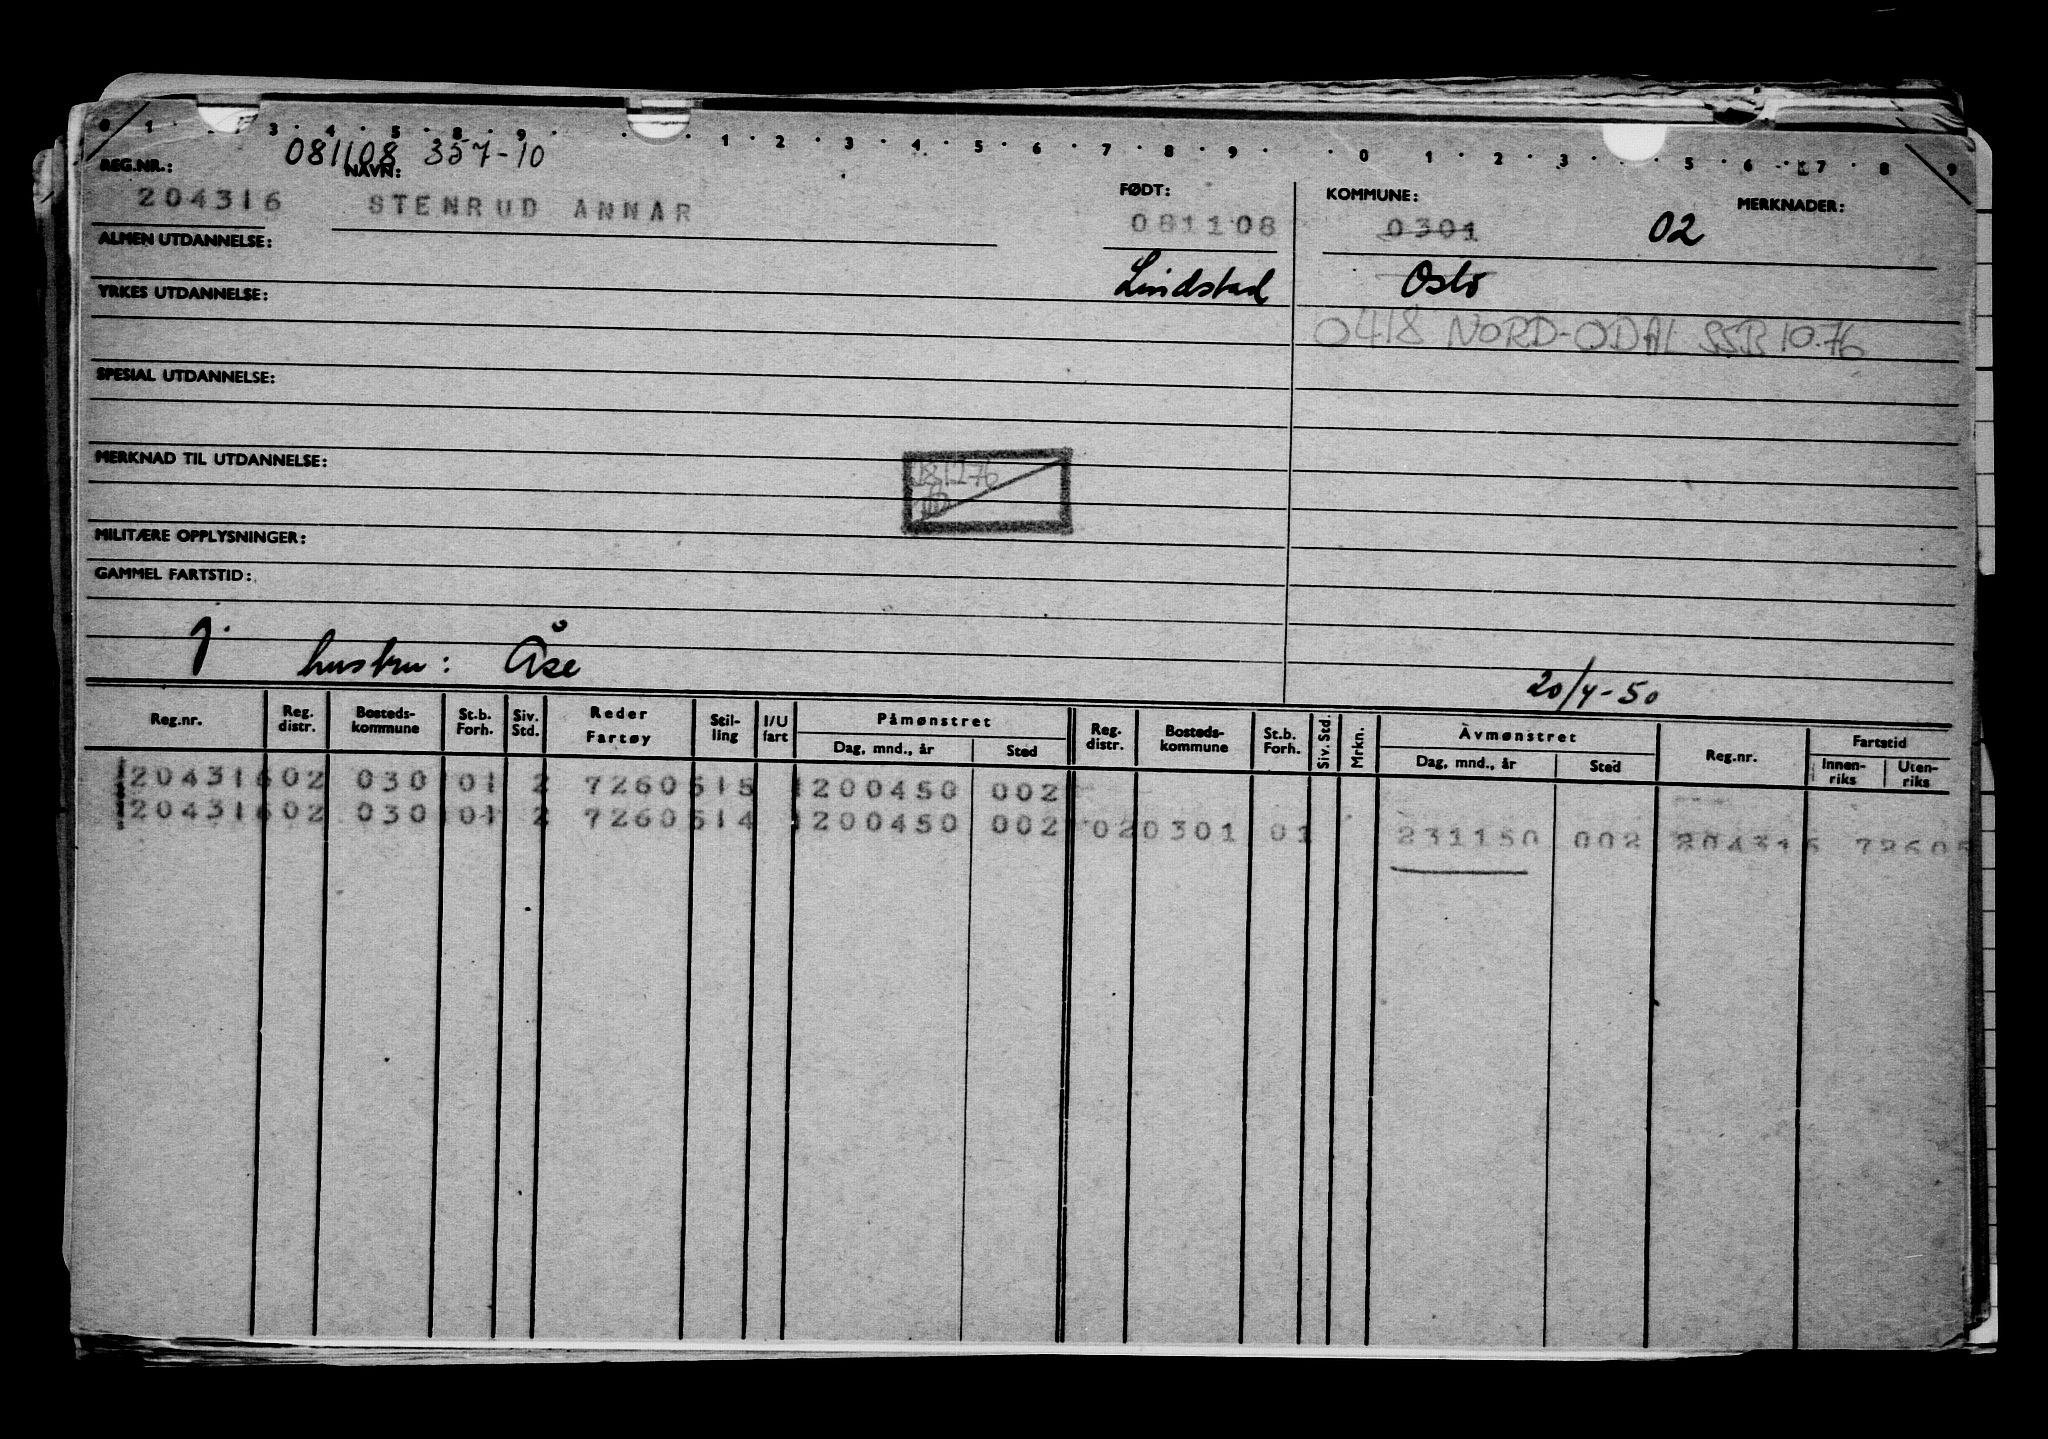 0 1 3 4 5 8 9 1 2 3 4 5 6 7 8 9 0 1 2 3 5 6 7 8 9
081108 357-10
REG.NR.: NAVN: FØDT: KOMMUNE: MERKNADER:
204316 STENRUD ANNAR 081108 0301 02
ALMEN UTDANNELSE:
Lindstad Oslo
YRKES UTDANNELSE:
0418 NORD-ODAL SSB 10.76
SPESIAL UTDANNELSE:
MERKNAD TIL UTDANNELSE:
MILITÆRE OPPLYSNINGER:
GAMMEL FARTSTID:
J. hustru: Åse
20/4-50
Reg.nr. Reg. distr. Bosteds-kommune St.b. Forh. Siv. Std. Reder Fartøy Stil-ling I/U fart Påmønstret Dag, mnd., år Sted Reg. distr. Bosteds-kommune St.b. Forh. Siv. Std. Mrkn. Avmønstret Dag, mnd., år Sted Reg.nr. Fartstid Innen-riks Uten-riks
204316 02 030 01 2 7260 515 1 200450 002
204316 02 030 01 2 7260 514 1 200450 002 02 0301 01 231150 002 204316 72605